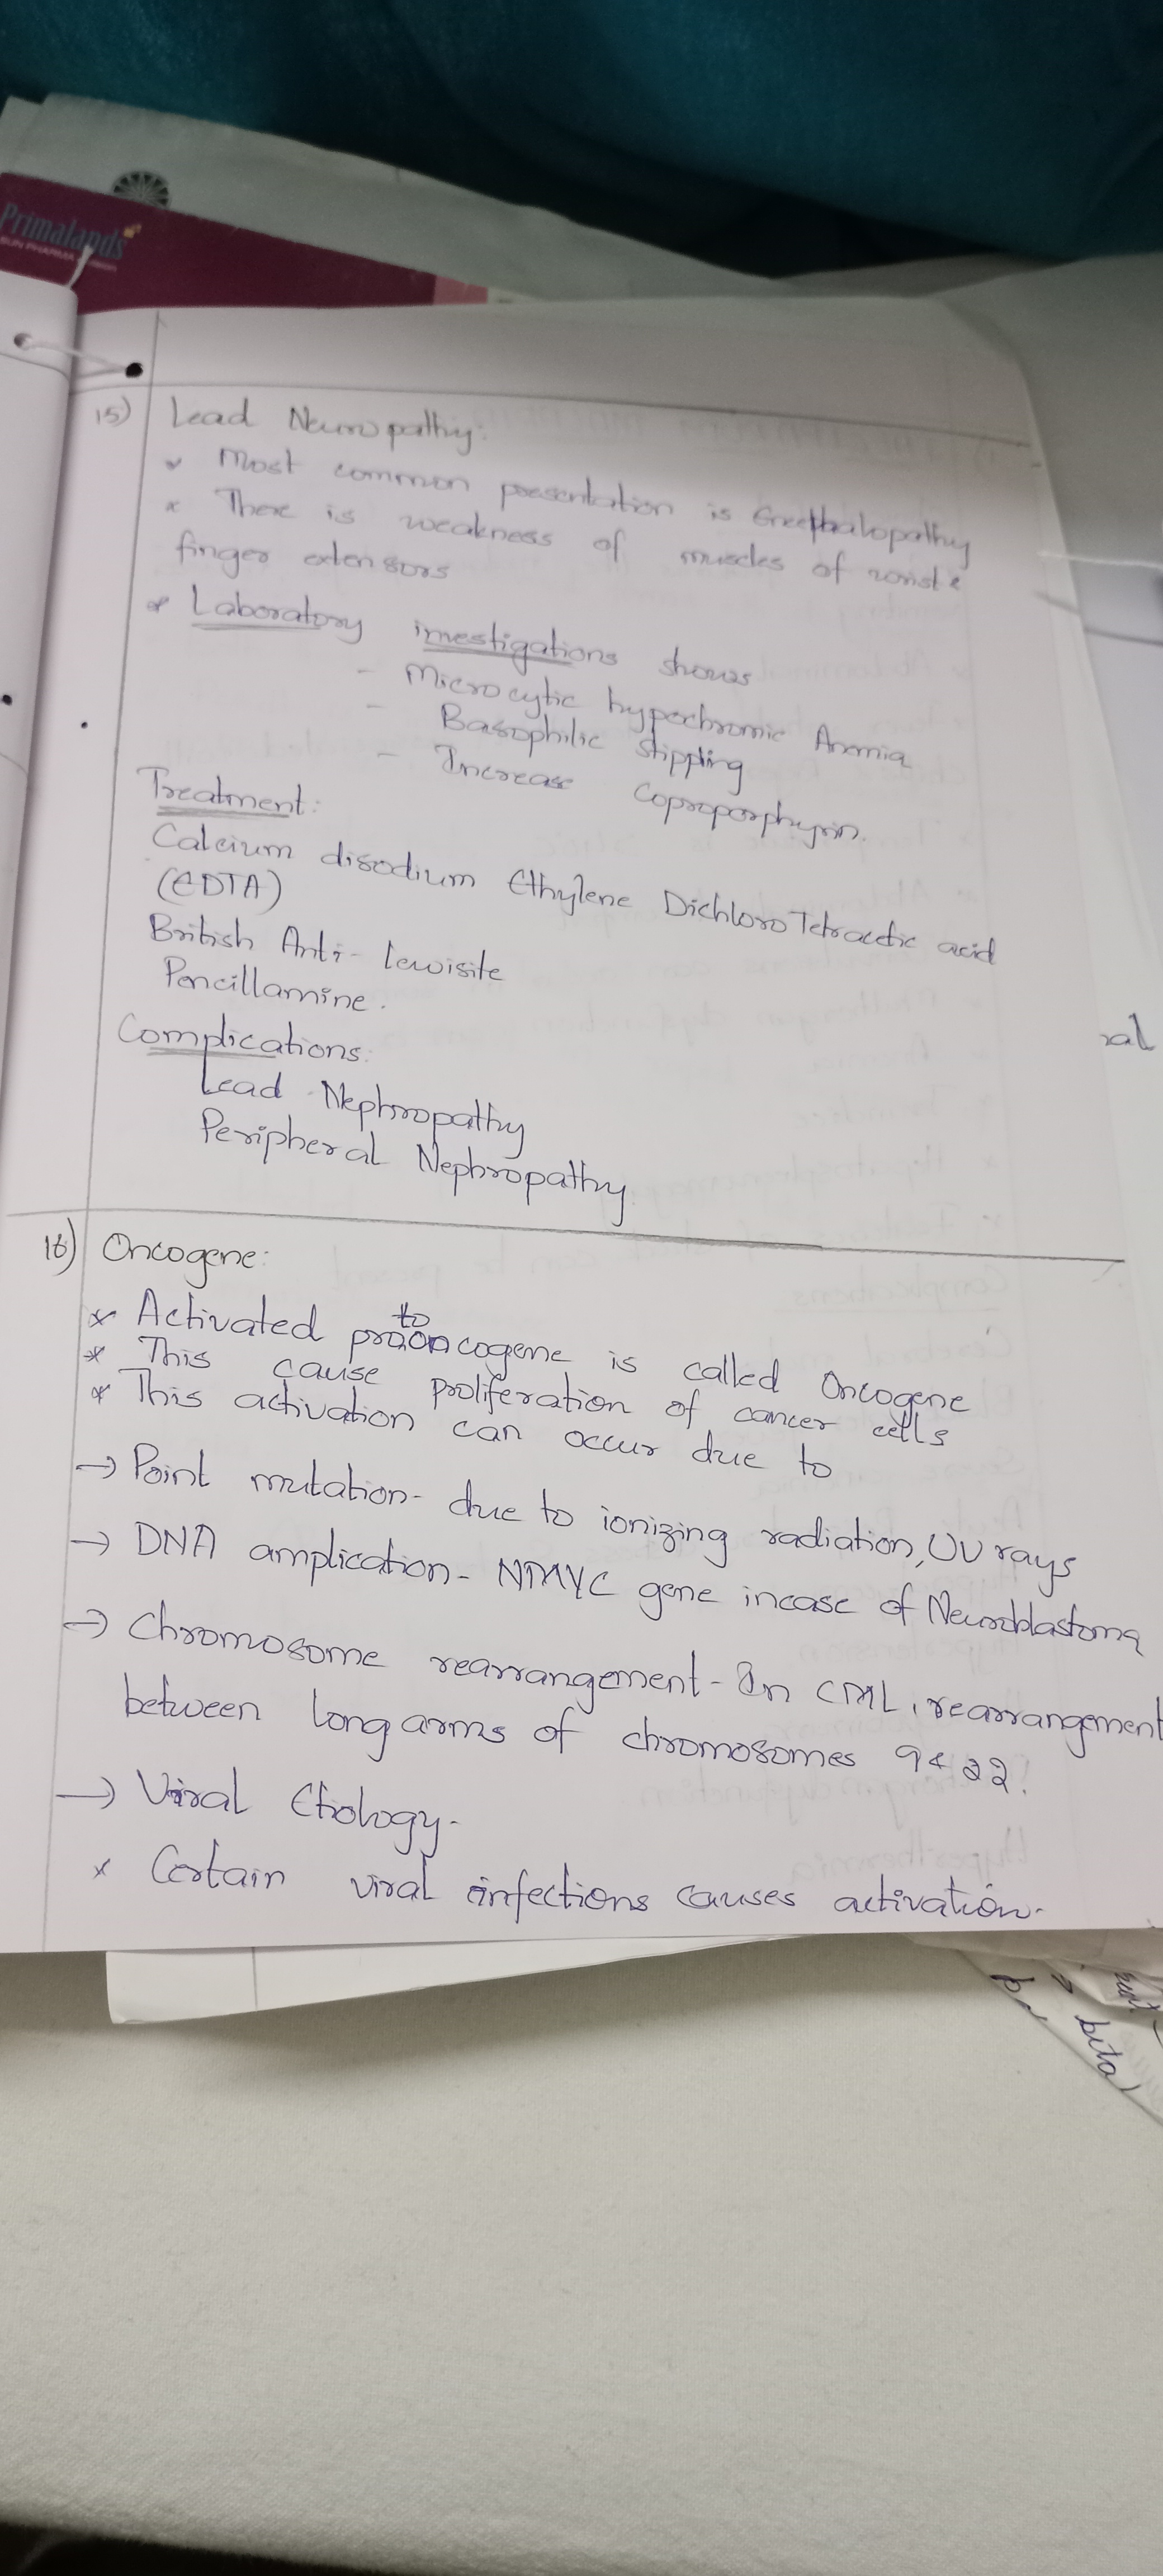 Primalands
SUN PHARMA
15) Lead Neuropathy:
* Most common presentation is Encephalopathy
* There is weakness of muscles of wrist &
finger extensors
* Laboratory investigations shows
- Microcytic hypochromic Anemia
- Basophilic Stippling
- Increase Coproporphyrin.
Treatment:
Calcium disodium Ethylene Dichloro Tetracetic acid
(EDTA)
British Anti-lewisite
Pencillamine.
Complications:
Lead Nephropathy
Peripheral Nephropathy
ral
16) Oncogene:
* Activated protooncogene is called Oncogene
* This cause proliferation of cancer cells
* This activation can occur due to
→ Point mutation- due to ionizing radiation, UV rays
→ DNA amplication- NMYC gene incase of Neuroblastoma
→ Chromosome rearrangement- In CML, rearrangement
between long arms of chromosomes 9 & 22.
→ Viral Etiology-
* Certain viral infections causes activation.
bital